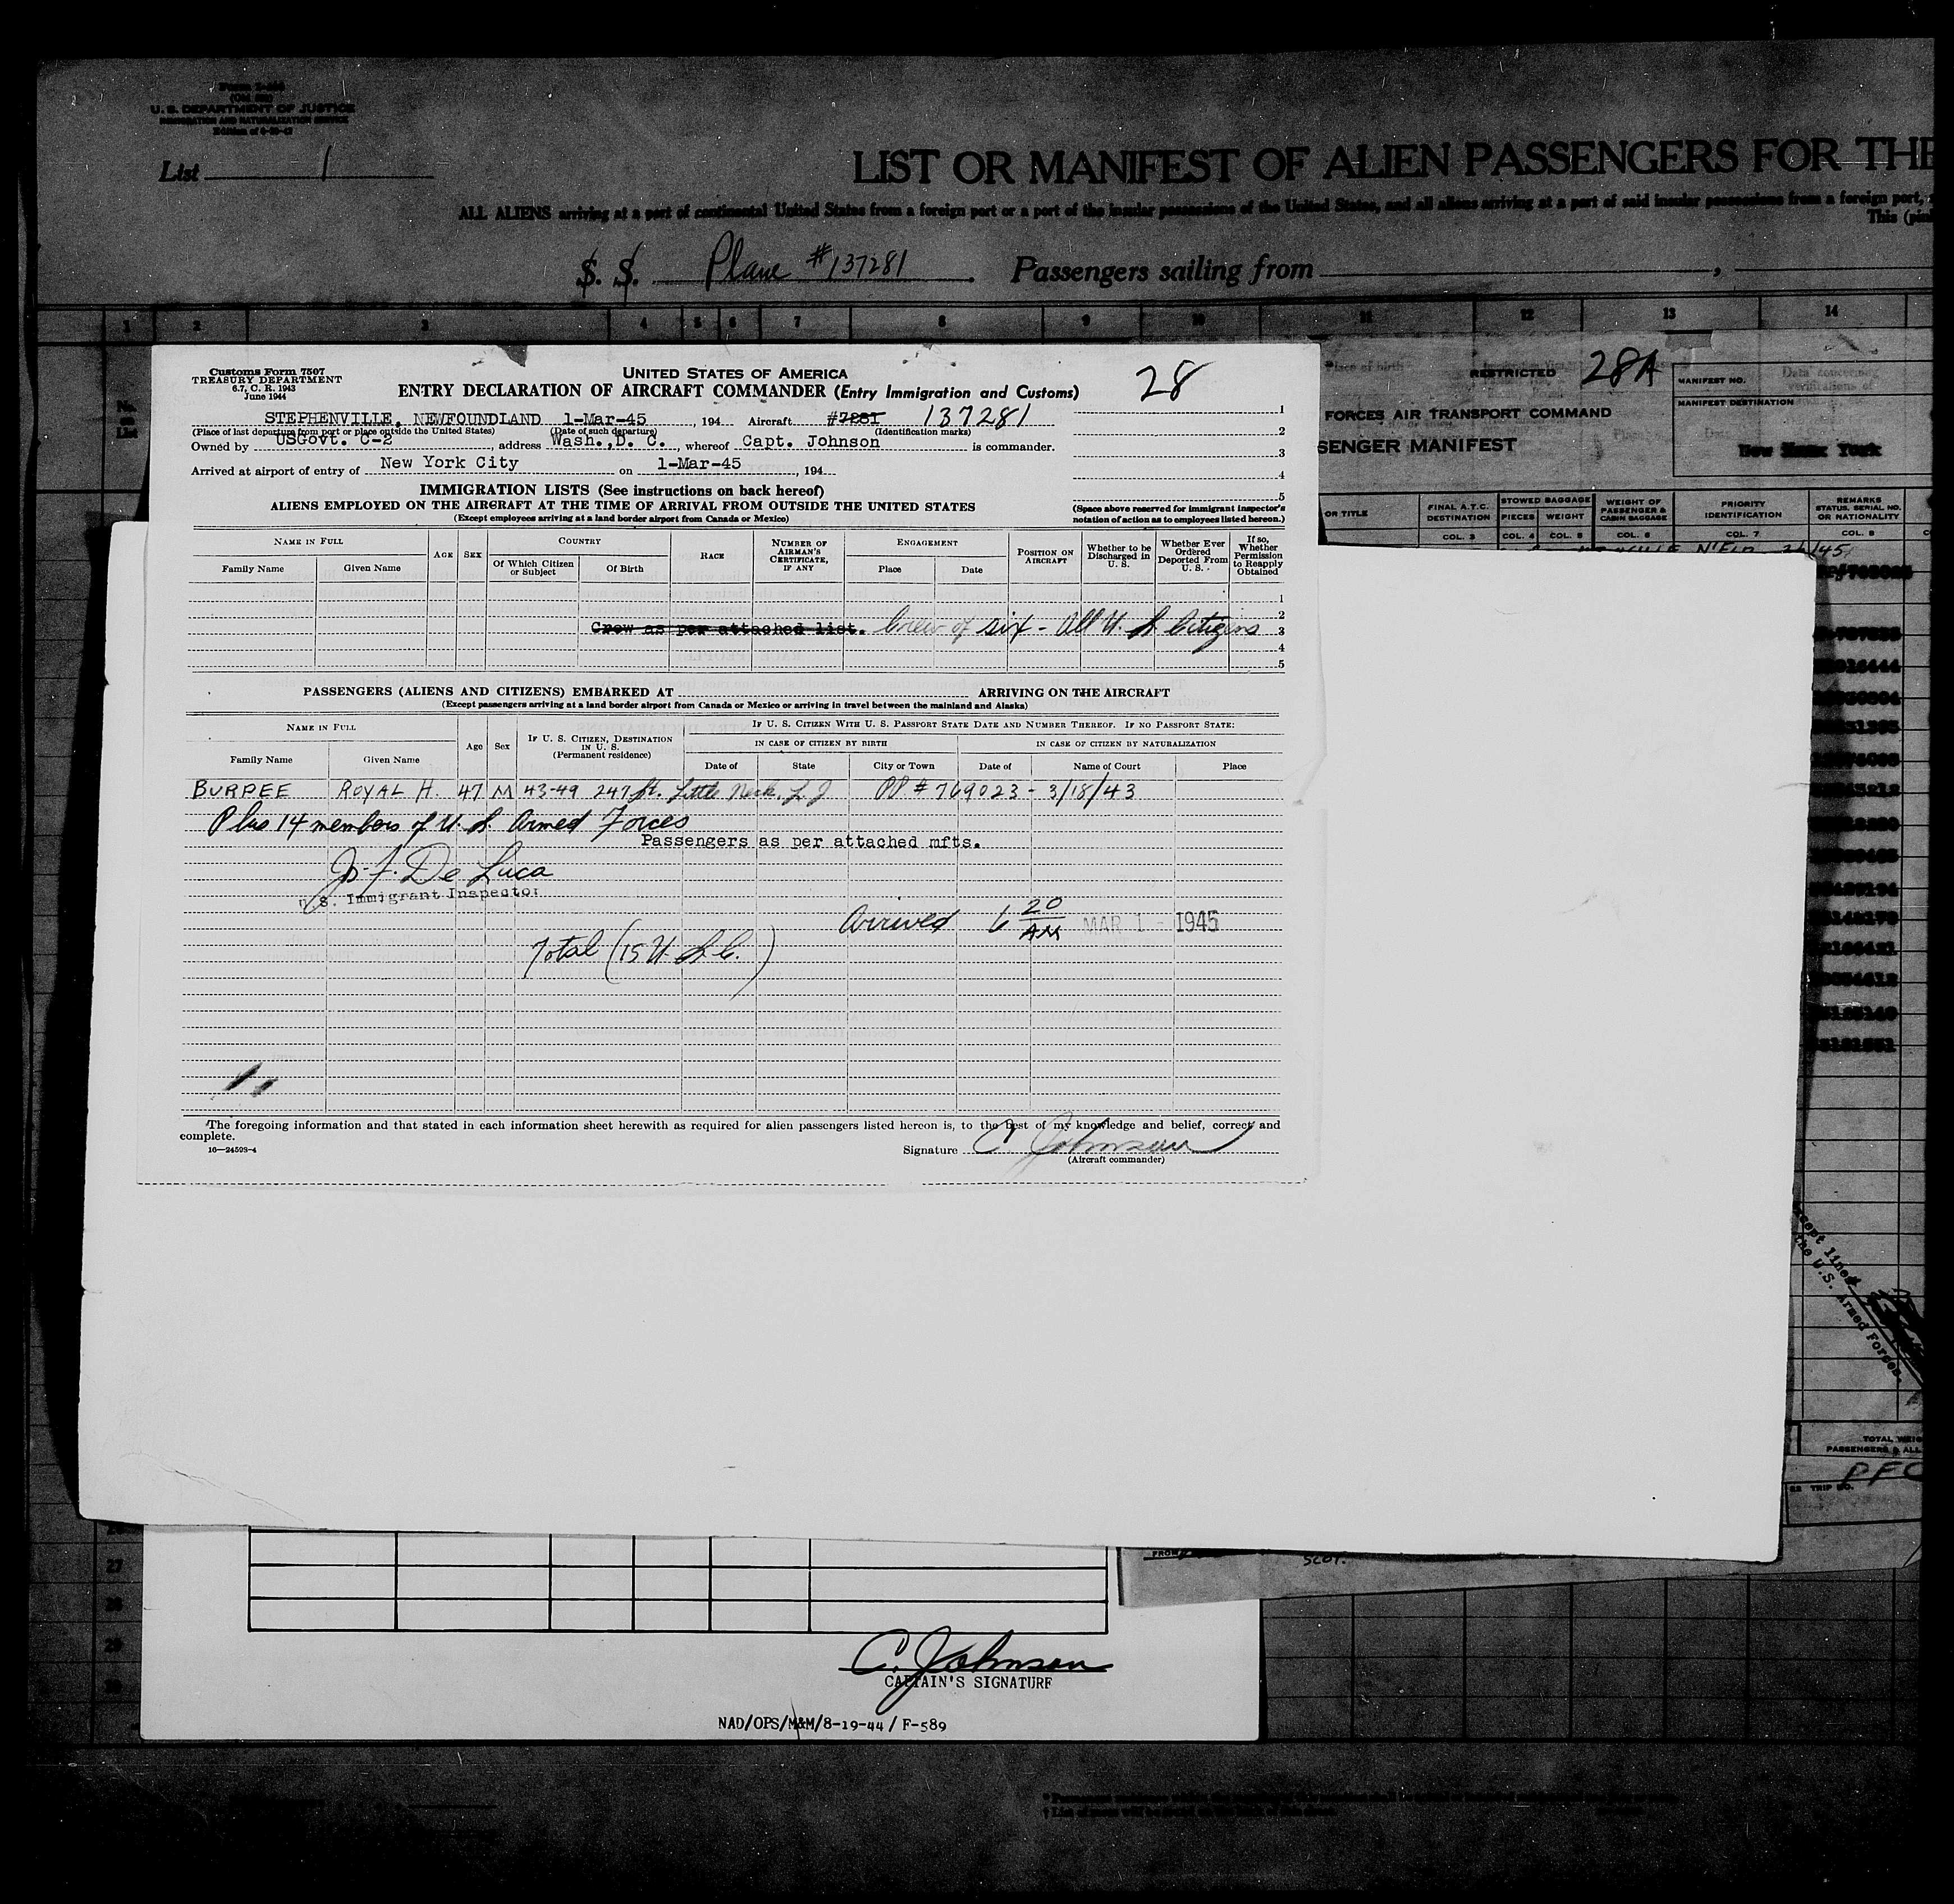 U. S. DEPARTMENT OF JUSTICE
IMMIGRATION AND NATURALIZATION SERVICE
List 1
LIST OR MANIFEST OF ALIEN PASSENGERS FOR THE
ALL ALIENS arriving at a port of continental United States from a foreign port or a port of the insular possessions of the United States, and all aliens arriving at a port of said insular possessions from a foreign port,
This
S. S. Plane #137281 Passengers sailing from
1 2 3 4 5 6 7 8 9 10 11 12 13 14
No. on List
Customs Form 7507
TREASURY DEPARTMENT
6.7, C. R. 1943
June 1944
UNITED STATES OF AMERICA
28
ENTRY DECLARATION OF AIRCRAFT COMMANDER (Entry Immigration and Customs)
STEPHENVILLE, NEWFOUNDLAND 1-Mar-45, 194 Aircraft #7281 137281
(Place of last departure from port or place outside the United States) (Date of such departure) (Identification marks)
Owned by USGovt. C-2, address Wash., D. C., whereof Capt. Johnson is commander.
Arrived at airport of entry of New York City on 1-Mar-45, 194
1
2
3
4
5
IMMIGRATION LISTS (See instructions on back hereof)
ALIENS EMPLOYED ON THE AIRCRAFT AT THE TIME OF ARRIVAL FROM OUTSIDE THE UNITED STATES
(Except employees arriving at a land border airport from Canada or Mexico)
(Space above reserved for immigrant inspector's notation of action as to employees listed hereon.)
NAME IN FULL
Family Name Given Name
AGE SEX
COUNTRY
Of Which Citizen or Subject Of Birth
RACE
NUMBER OF AIRMAN'S CERTIFICATE, IF ANY
ENGAGEMENT
Place Date
POSITION ON AIRCRAFT
Whether to be Discharged in U. S.
Whether Ever Ordered Deported From U. S.
If so, Whether Permission to Reapply Obtained
1
2
Crew as per attached list. Crew of six - All U. S. Citizens 3
4
5
PASSENGERS (ALIENS AND CITIZENS) EMBARKED AT ARRIVING ON THE AIRCRAFT
(Except passengers arriving at a land border airport from Canada or Mexico or arriving in travel between the mainland and Alaska)
NAME IN FULL
Family Name Given Name
Age Sex
IF U. S. CITIZEN, DESTINATION IN U. S.
(Permanent residence)
IF U. S. CITIZEN WITH U. S. PASSPORT STATE DATE AND NUMBER THEREOF. IF NO PASSPORT STATE:
IN CASE OF CITIZEN BY BIRTH IN CASE OF CITIZEN BY NATURALIZATION
Date of State City or Town Date of Name of Court Place
BURPEE ROYAL H. 47 M 43-49 247 St. Little Neck, L I PP # 769023 - 3/18/43
Plus 14 members of U. S. Armed Forces
Passengers as per attached mfts.
Js. F. De Luca
U.S. Immigrant Inspector
Arrived 6 20 AM MAR 1 - 1945
Total (15 U. S. C.)
The foregoing information and that stated in each information sheet herewith as required for alien passengers listed hereon is, to the best of my knowledge and belief, correct and complete.
16—24598-4
Signature C Johnson
(Aircraft commander)
RESTRICTED 28A
FORCES AIR TRANSPORT COMMAND
SENGER MANIFEST
MANIFEST NO.
MANIFEST DESTINATION
New York
OR TITLE
FINAL A.T.C. DESTINATION
STOWED BAGGAGE
PIECES WEIGHT
WEIGHT OF PASSENGER & CABIN BAGGAGE
PRIORITY IDENTIFICATION
REMARKS STATUS, SERIAL NO. OR NATIONALITY
COL. 3 COL. 4 COL. 5 COL. 6 COL. 7 COL. 8
N'FLD
the U.S. Armed Forces.
TRIP NO.
27
28
29
C. Johnson
CAPTAIN'S SIGNATURE
NAD/OPS/M&M/8-19-44 / F-589